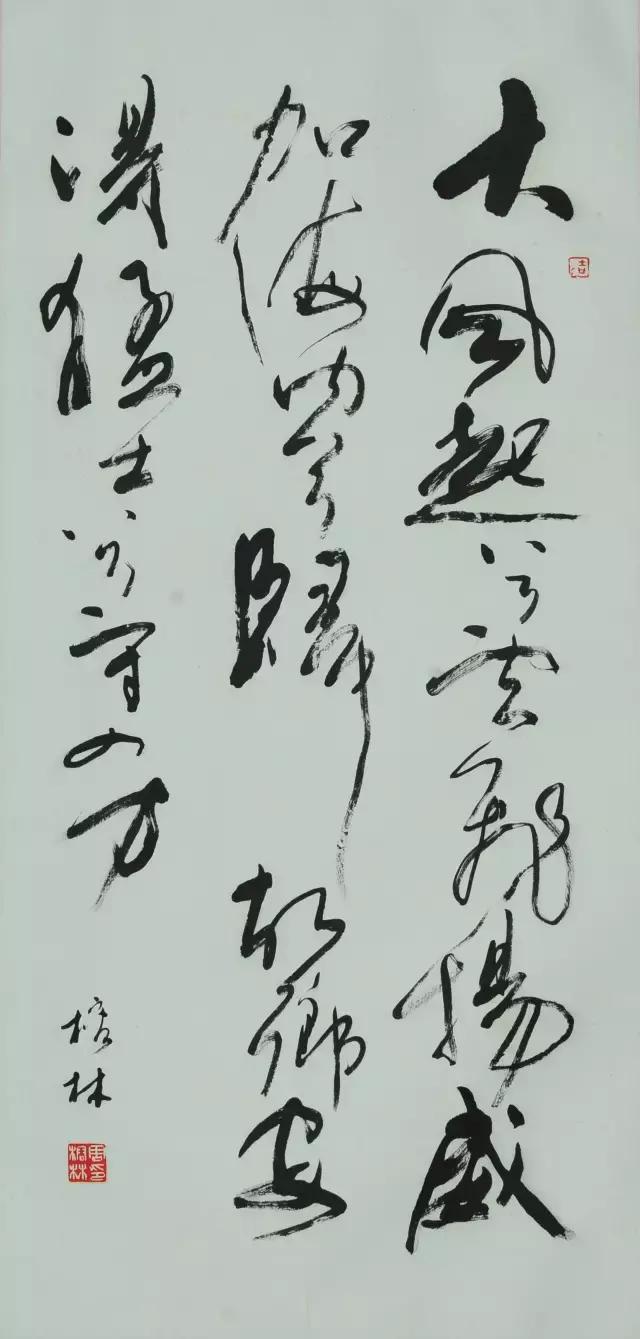 大風起兮雲飛揚威
加海内兮歸故鄉安
得猛士兮守四方
榕林